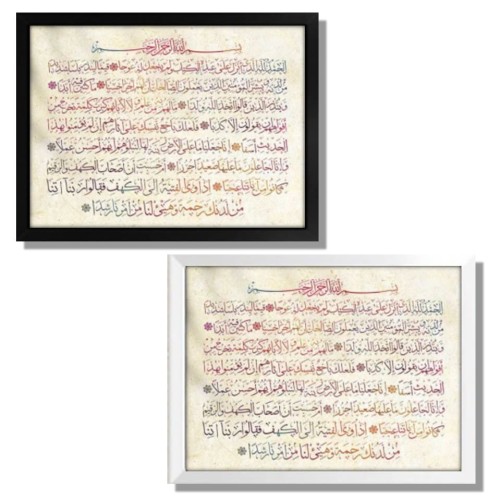 بسم الله الرحمن الرحيم
الحمد لله الذي أنزل على عبده الكتاب ولم يجعل له عوجا قيما لينذر بأسا شديدا
من لدنه ويبشر المؤمنين الذين يعملون الصالحات أن لهم أجرا حسنا ماكثين فيه أبدا
وينذر الذين قالوا اتخذ الله ولدا ما لهم به من علم ولا لآبائهم كبرت كلمة تخرج من
أفواههم إن يقولون إلا كذبا فلعلك باخع نفسك على آثارهم إن لم يؤمنوا بهذا
الحديث أسفا إنا جعلنا ما على الأرض زينة لها لنبلوهم أيهم أحسن عملا
وإنا لجاعلون ما عليها صعيدا جرزا أم حسبت أن أصحاب الكهف والرقيم
كانوا من آياتنا عجبا إذ أوى الفتية إلى الكهف فقالوا ربنا آتنا
من لدنك رحمة وهيئ لنا من أمرنا رشدا
بسم الله الرحمن الرحيم
الحمد لله الذي أنزل على عبده الكتاب ولم يجعل له عوجا قيما لينذر بأسا شديدا
من لدنه ويبشر المؤمنين الذين يعملون الصالحات أن لهم أجرا حسنا ماكثين فيه أبدا
وينذر الذين قالوا اتخذ الله ولدا ما لهم به من علم ولا لآبائهم كبرت كلمة تخرج من
أفواههم إن يقولون إلا كذبا فلعلك باخع نفسك على آثارهم إن لم يؤمنوا بهذا
الحديث أسفا إنا جعلنا ما على الأرض زينة لها لنبلوهم أيهم أحسن عملا
وإنا لجاعلون ما عليها صعيدا جرزا أم حسبت أن أصحاب الكهف والرقيم
كانوا من آياتنا عجبا إذ أوى الفتية إلى الكهف فقالوا ربنا آتنا
من لدنك رحمة وهيئ لنا من أمرنا رشدا